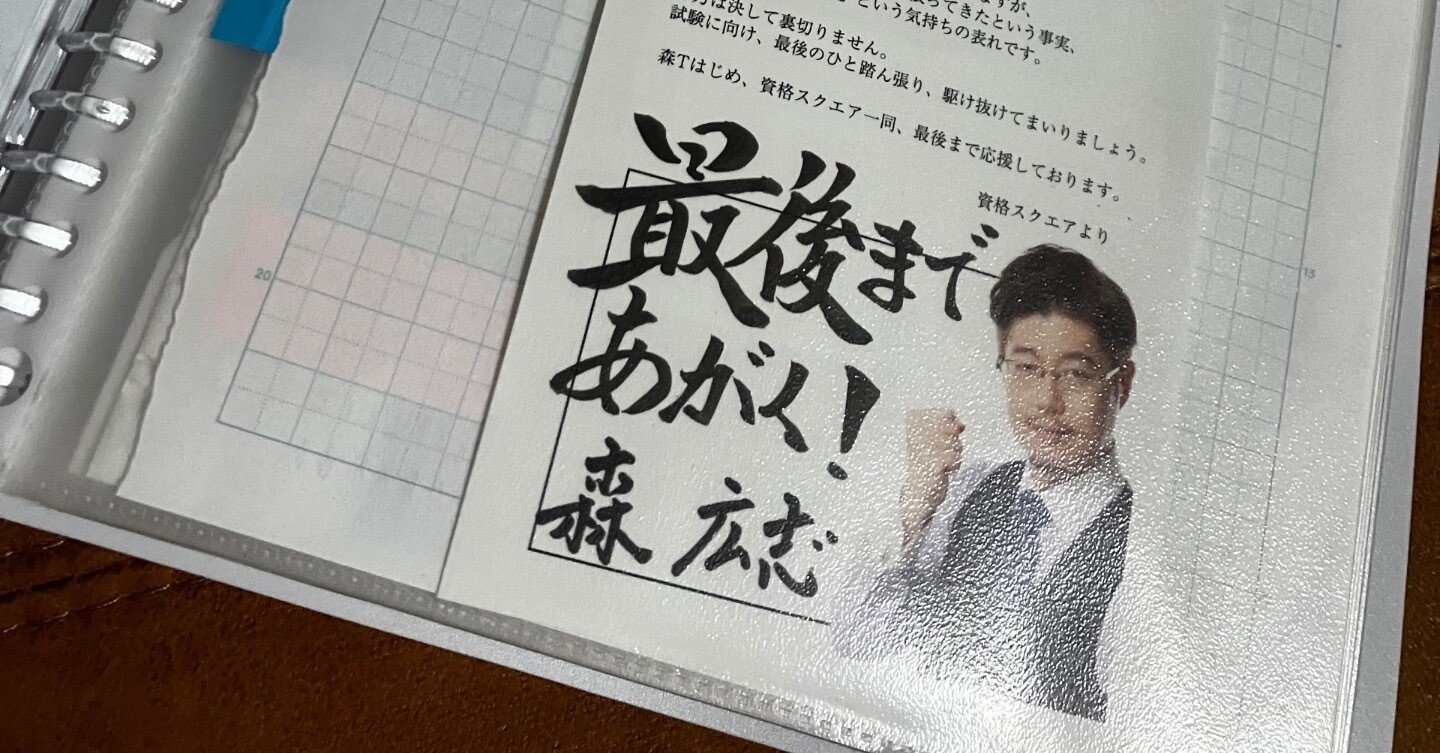 てきたという事実、
という気持ちの表れです。
は決して裏切りません。
試験に向け、最後のひと踏ん張り、駆け抜けてまいりましょう。
森Tはじめ、資格スクエア一同、最後まで応援しております。
資格スクエアより
最後まで
あがく！
森 広志
20
15